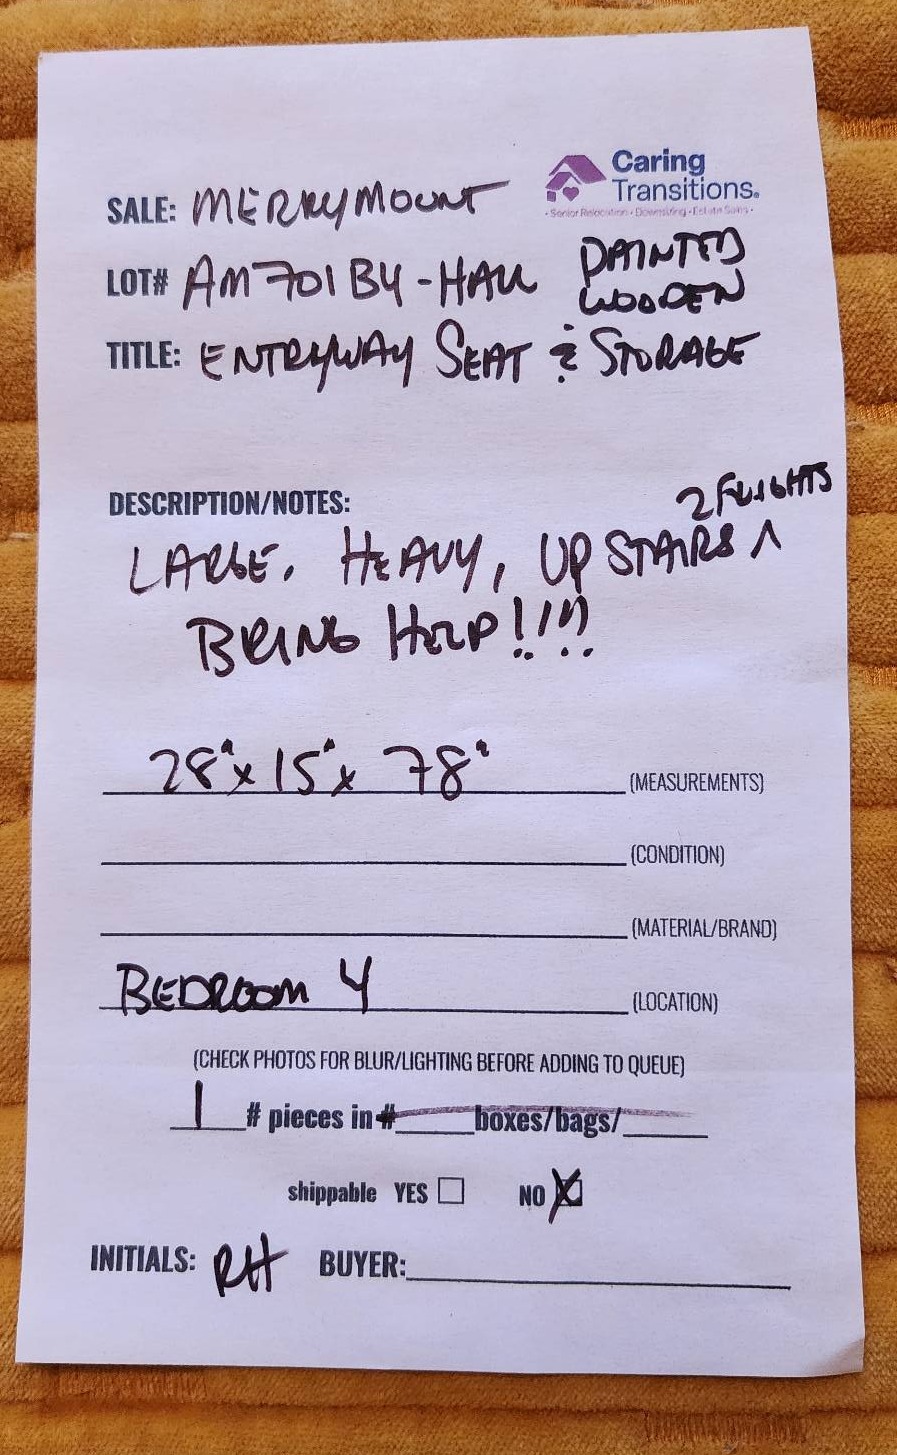 Caring
Transitions.
• Senior Relocation • Downsizing • Estate Sales •
SALE: MERRYMOUNT
LOT# AM701B4-HALL
PAINTED
WOODEN
TITLE: ENTRYWAY SEAT & STORAGE
DESCRIPTION/NOTES:
2 FLIGHTS
LARGE, HEAVY, UPSTAIRS ^
BRING HELP!!!!
28" x 15" x 78" (MEASUREMENTS)
(CONDITION)
(MATERIAL/BRAND)
BEDROOM 4 (LOCATION)
(CHECK PHOTOS FOR BLUR/LIGHTING BEFORE ADDING TO QUEUE)
1 # pieces in # boxes/bags/
shippable YES NO X
INITIALS: RH BUYER: